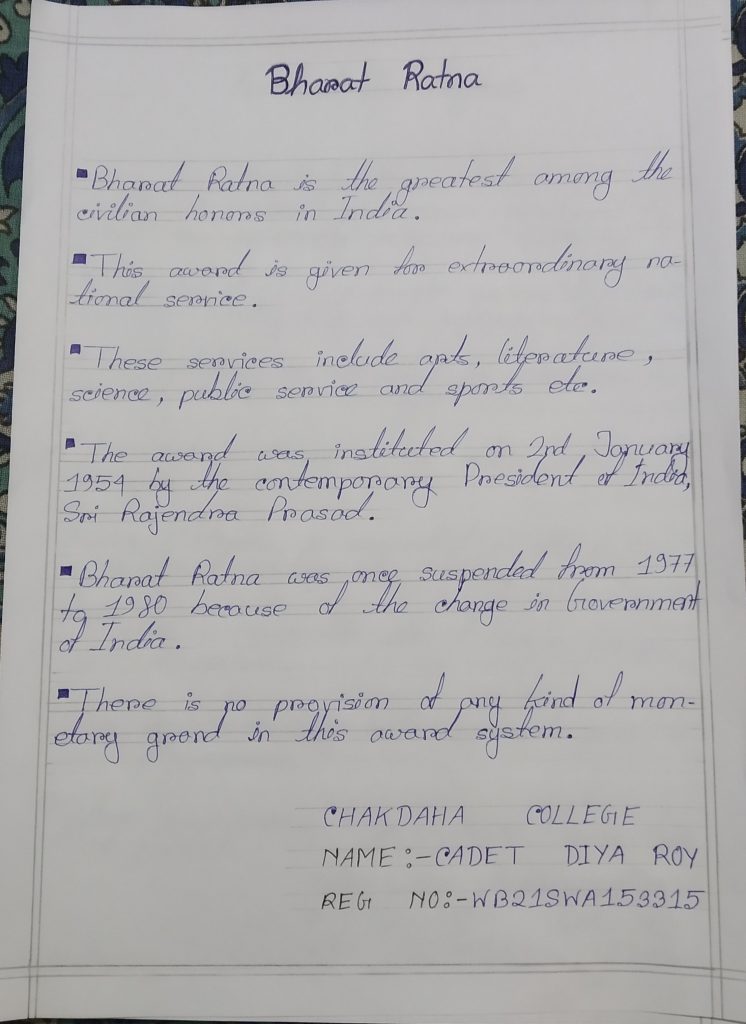 Bharat Ratna
▪Bharat Ratna is the greatest among the
civilian honors in India.
▪This award is given for extraordinary na-
tional service.
▪These services include arts, literature,
science, public service and sports etc.
▪The award was instituted on 2nd January
1954 by the contemporary President of India,
Sri Rajendra Prasad.
▪Bharat Ratna was once suspended from 1977
to 1980 because of the change in Government
of India.
▪There is no provision of any kind of mon-
etary grand in this award system.
CHAKDAHA COLLEGE
NAME:-CADET DIYA ROY
REG NO:-WB21SWA153315